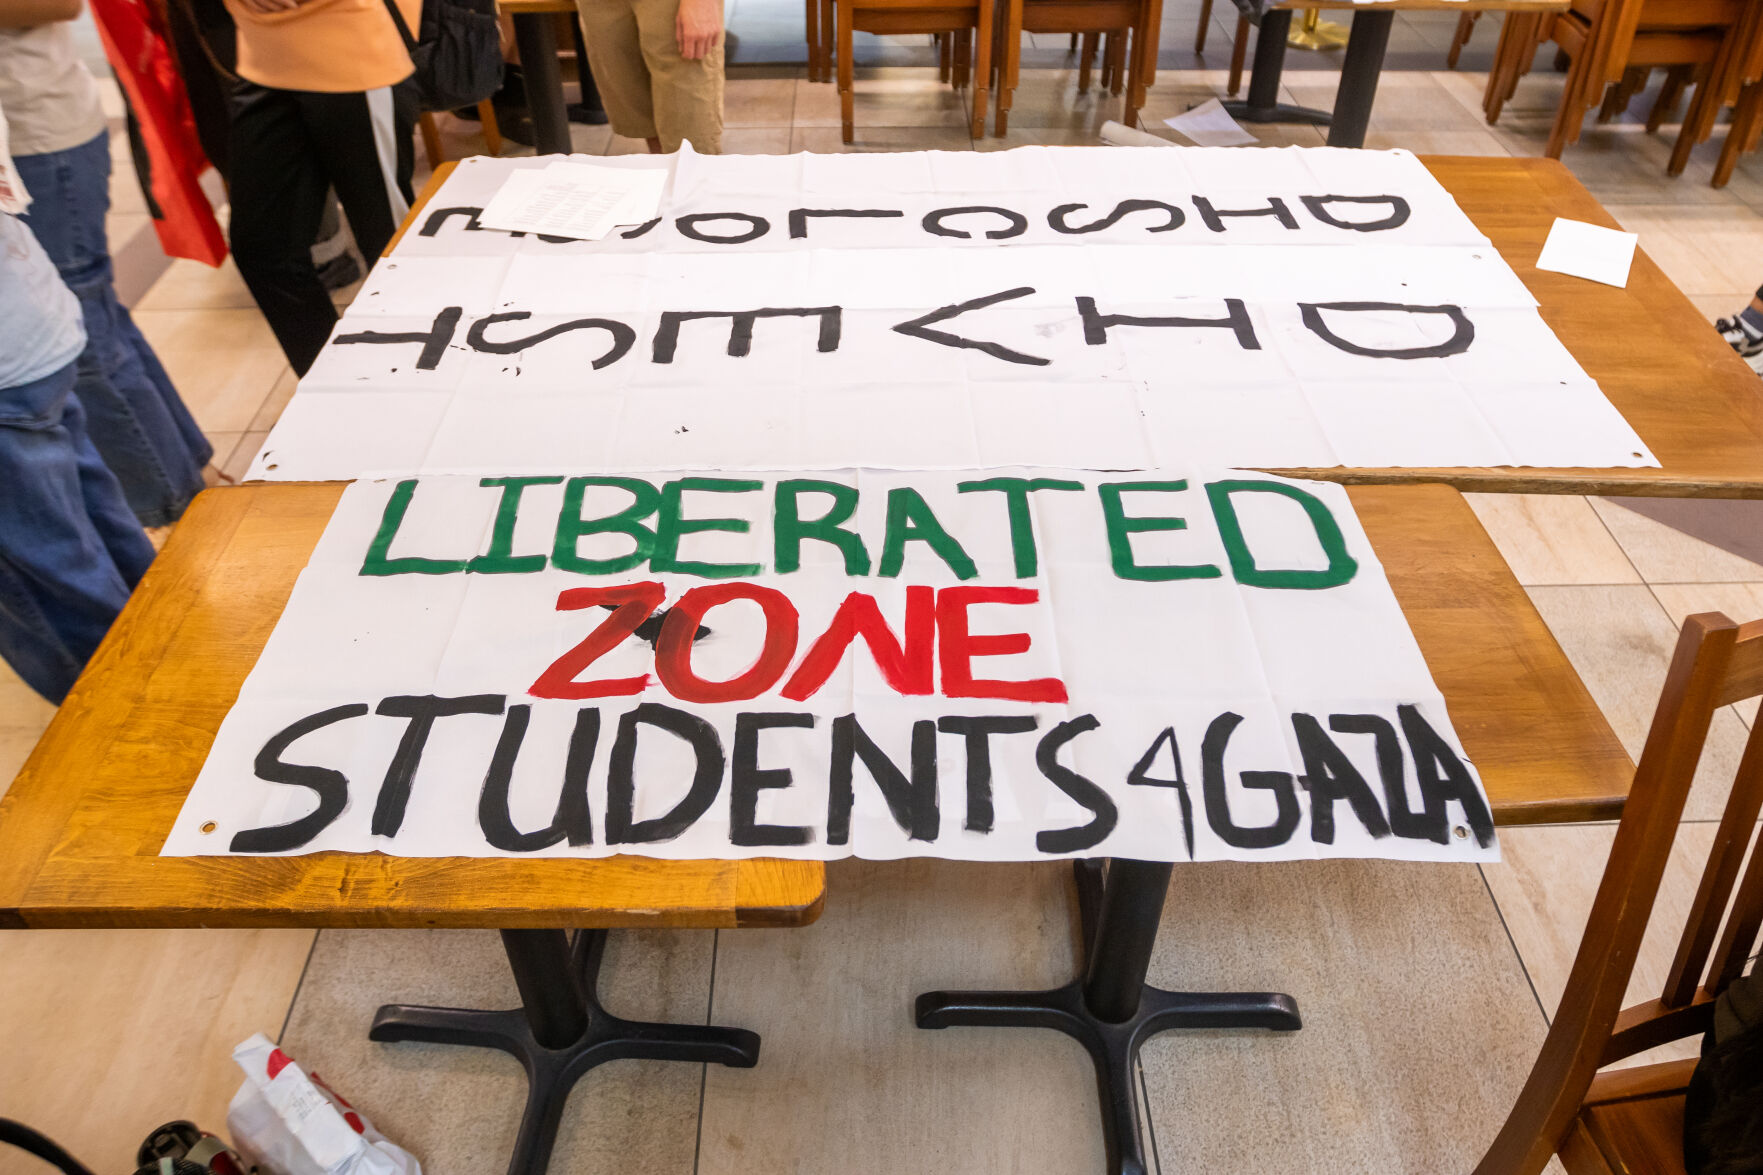 DISCLOSE
DIVEST
LIBERATED
ZONE
STUDENTS 4 GAZA